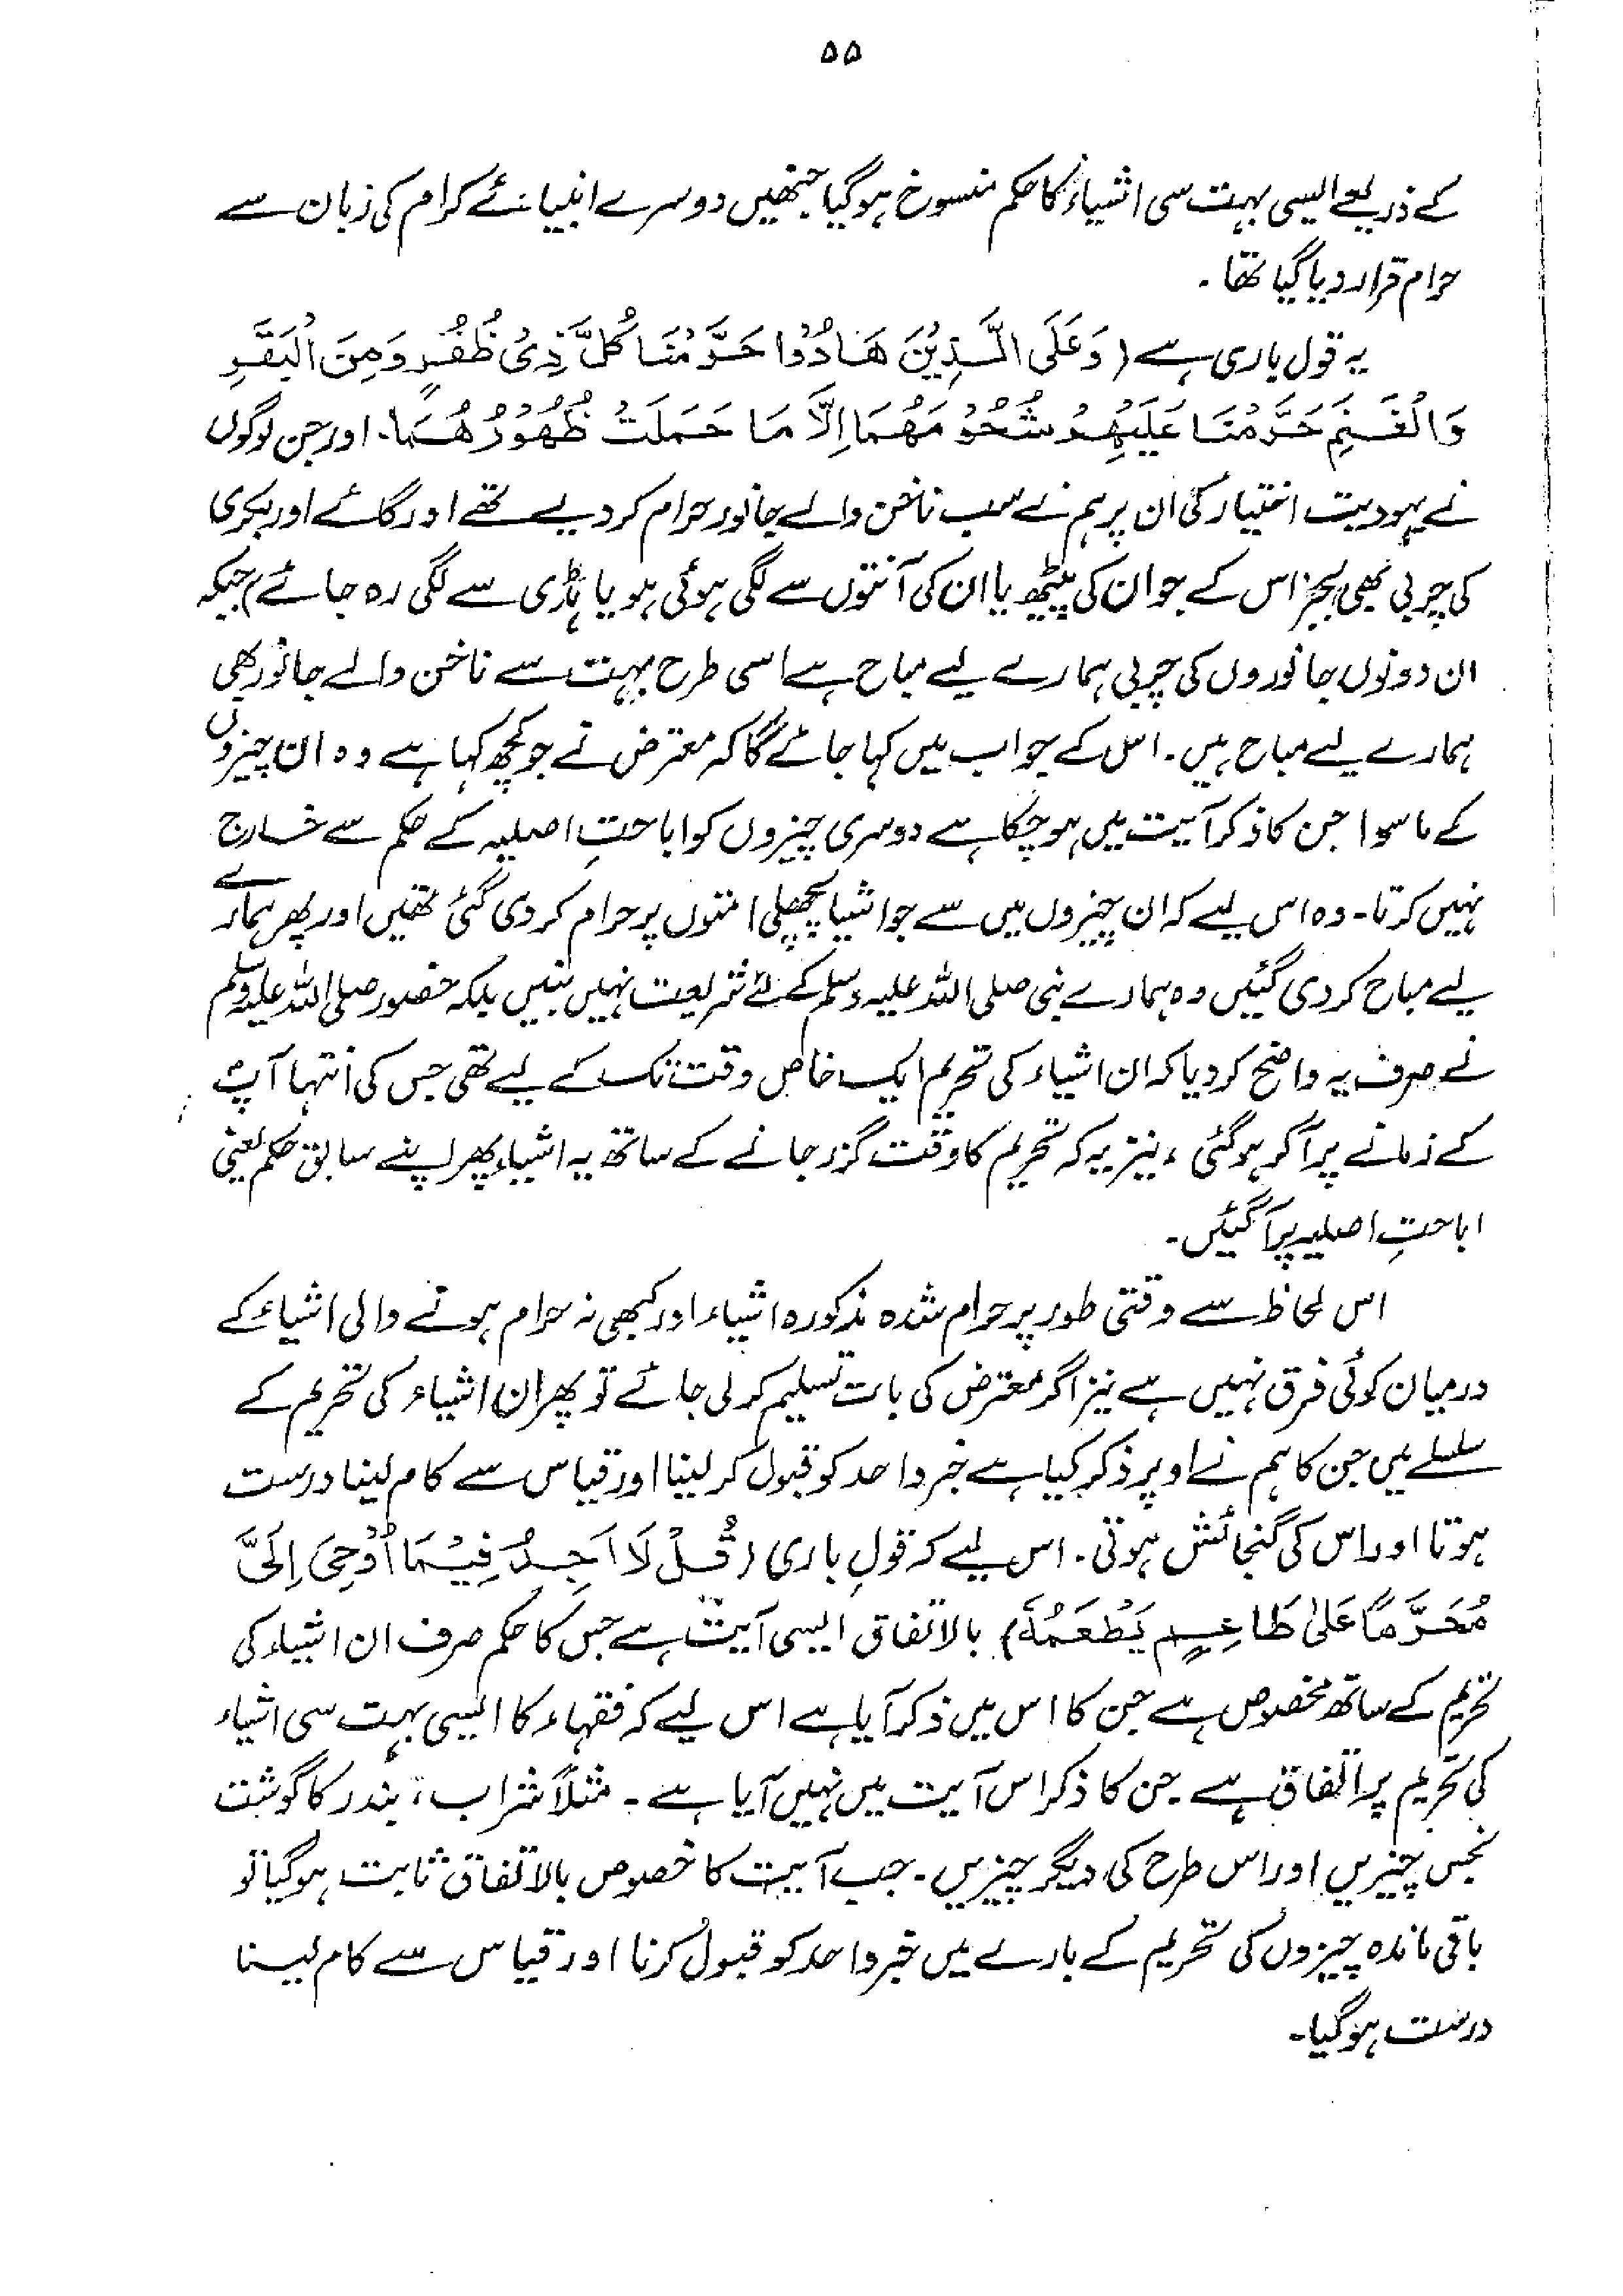 ۵۵
کے ذریعے ایسی بہت سی اشیاء کا حکم منسوخ ہو گیا جنھیں دوسرے انبیائے کرام کی زبان سے
حرام قرار دیا گیا تھا۔
یہ قول باری ہے (وَعَلَى الَّذِيْنَ هَادُوْا حَرَّمْنَا كُلَّ ذِىْ ظُفُرٍ وَمِنَ الْبَقَرِ
وَالْغَنَمِ حَرَّمْنَا عَلَيْهِمْ شُحُوْمَهُمَا اِلَّا مَا حَمَلَتْ ظُهُوْرُهُمَا۔ اور جن لوگوں
نے یہودیت اختیار کی ان پر ہم نے سب ناخن والے جانور حرام کر دیے تھے اور گائے اور بکری
کی چربی بھی بجز اس کے جو ان کی پیٹھ یا ان کی آنتوں سے لگی ہوئی ہو یا ہڈی سے لگی رہ جائے) جبکہ
ان دونوں جانوروں کی چربی ہمارے لیے مباح ہے اسی طرح بہت سے ناخن والے جانور بھی
ہمارے لیے مباح ہیں۔ اس کے جواب میں کہا جائے گا کہ معترض نے جو کچھ کہا ہے وہ ان چیزوں
کے ماسوا جن کا ذکر آیت میں ہو چکا ہے دوسری چیزوں کو اباحتِ اصلیہ کے حکم سے خارج
نہیں کرتا۔ وہ اس لیے کہ ان چیزوں میں سے جو اشیا پچھلی امتوں پر حرام کر دی گئی تھیں اور پھر ہمارے
لیے مباح کر دی گئیں وہ ہمارے نبی صلی اللہ علیہ وسلم کے لئے شریعت نہیں بنیں بلکہ حضور صلی اللہ علیہ وسلم
نے صرف یہ واضح کر دیا کہ ان اشیاء کی تحریم ایک خاص وقت تک کے لیے تھی جس کی انتہا آپ
کے زمانے پر آ کر ہو گئی، نیز یہ کہ تحریم کا وقت گزر جانے کے ساتھ یہ اشیاء پھر اپنے سابق حکم یعنی
اباحتِ اصلیہ پر آ گئیں۔
اس لحاظ سے وقتی طور پر حرام شدہ مذکورہ اشیاء اور کبھی نہ حرام ہونے والی اشیاء کے
درمیان کوئی فرق نہیں ہے نیز اگر معترض کی بات تسلیم کر لی جائے تو پھر ان اشیاء کی تحریم کے
سلسلے میں جن کا ہم نے اوپر ذکر کیا ہے خبر واحد کو قبول کر لینا اور قیاس سے کام لینا درست
ہوتا اور اس کی گنجائش ہوتی۔ اس لیے کہ قولِ باری (قُلْ لَا اَجِدُ فِيْمَا اُوْحِىَ اِلَىَّ
مُحَرَّمًا عَلٰى طَاعِمٍ يَطْعَمُهٗ) بالاتفاق ایسی آیت ہے جس کا حکم صرف ان اشیاء کی
تحریم کے ساتھ مخصوص ہے جن کا اس میں ذکر آیا ہے اس لیے کہ فقہاء کا ایسی بہت سی اشیاء
کی تحریم پر اتفاق ہے جن کا ذکر اس آیت میں نہیں آیا ہے۔ مثلاً شراب، بندر کا گوشت
نجس چیزیں اور اس طرح کی دیگر چیزیں۔ جب آیت کا خصوص بالاتفاق ثابت ہو گیا تو
باقی ماندہ چیزوں کی تحریم کے بارے میں خبر واحد کو قبول کرنا اور قیاس سے کام لینا
درست ہو گیا۔